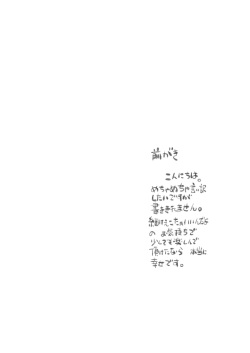 前がき
こんにちは。
めちゃめちゃ言い訳
したいですが
書ききれません。
細けえこたぁいいんだよ
の お気持ちで
少しでも楽しんで
頂けたなら 本当に
幸せです。